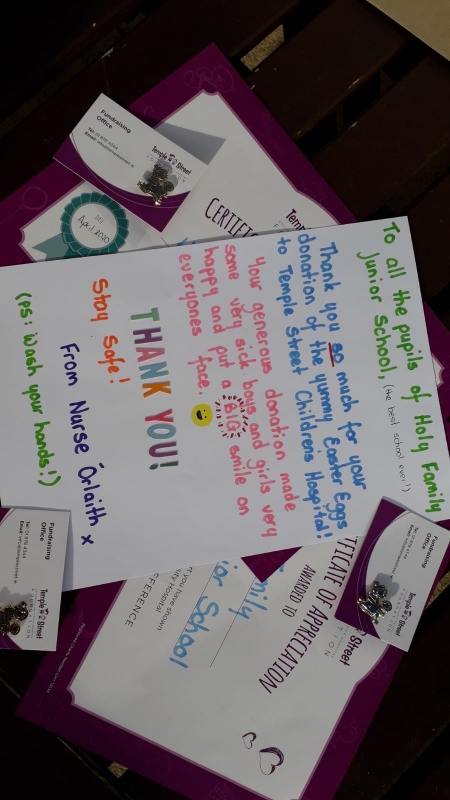 To all the pupils of Holy Family
Junior School, (the best school ever!)
Thank you so much for your
donation of the yummy Easter Eggs
to Temple Street Childrens Hospital!
Your generous donation made
some very sick boys and girls very
happy and put a BIG smile on
everyones face.
THANK YOU!
Stay Safe!
From Nurse Órlaith x
(PS: Wash your hands!)
Fundraising
Office
Temple Street
FOUNDATION
April 2020
CERTIFIC
Temp
Fundraising
Office
Temple Street
FOUNDATION
Fundraising
Office
Temple Street
FOUNDATION
Street
TIFICATE OF APPRECIATION
AWARDED TO
mily
ior School
you have shown
sity Hospital
FERENCE